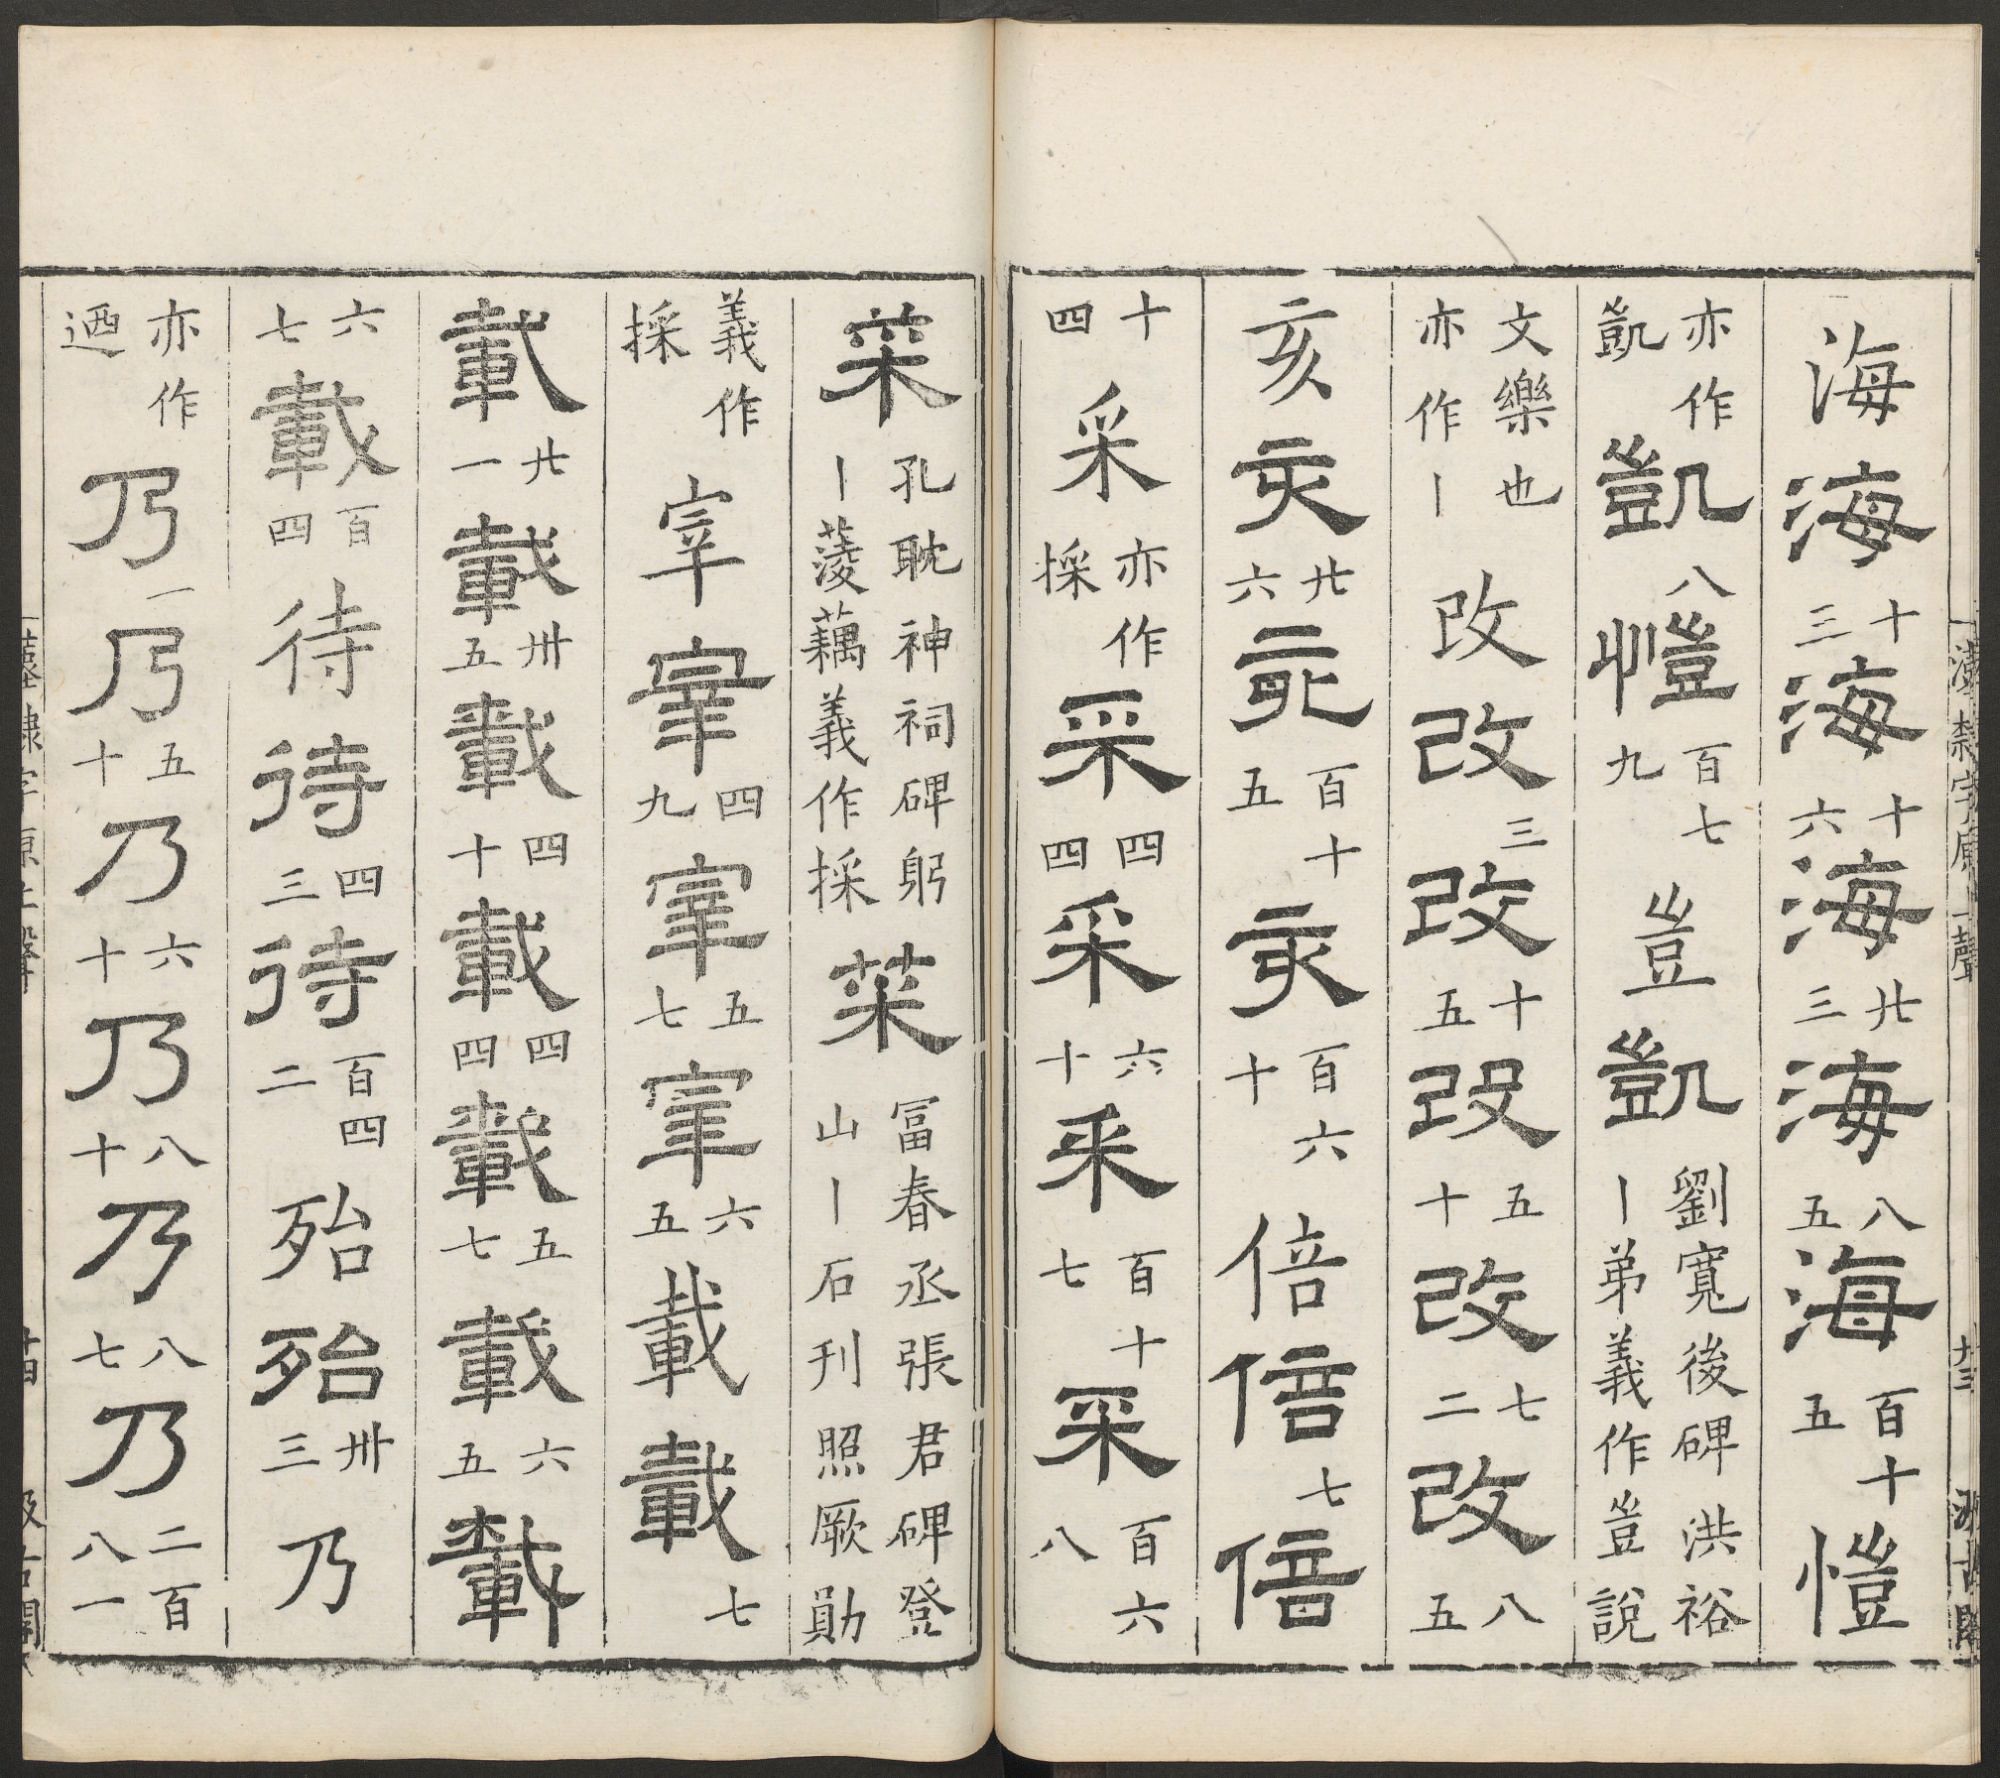 漢隸字原上聲 廿三 汲古閣
海海十三海十六海廿三海八五海百十五愷
亦作凱凱八愷百七九豈凱劉寬後碑洪裕丨弟義作豈說
文樂也亦作丨改改三改十五改五十改七二改八五
亥亥廿六亥百十五亥百六十倍倍七倍
十四采亦作採采四四采六十采百十七采百六八
菜孔耽神祠碑躬丨蔆藕義作採菜冨春丞張君碑登山丨石刊照厥勛
義作採宰宰四九宰五七宰六五載載七
載廿一載卅五載四十載四四載五七載六五載
六七載百四待待四三待百四二殆殆卅三乃
亦作迺乃一乃五十乃六十乃八十乃八七乃二百八一
漢隸字原上聲 廿四 汲古閣